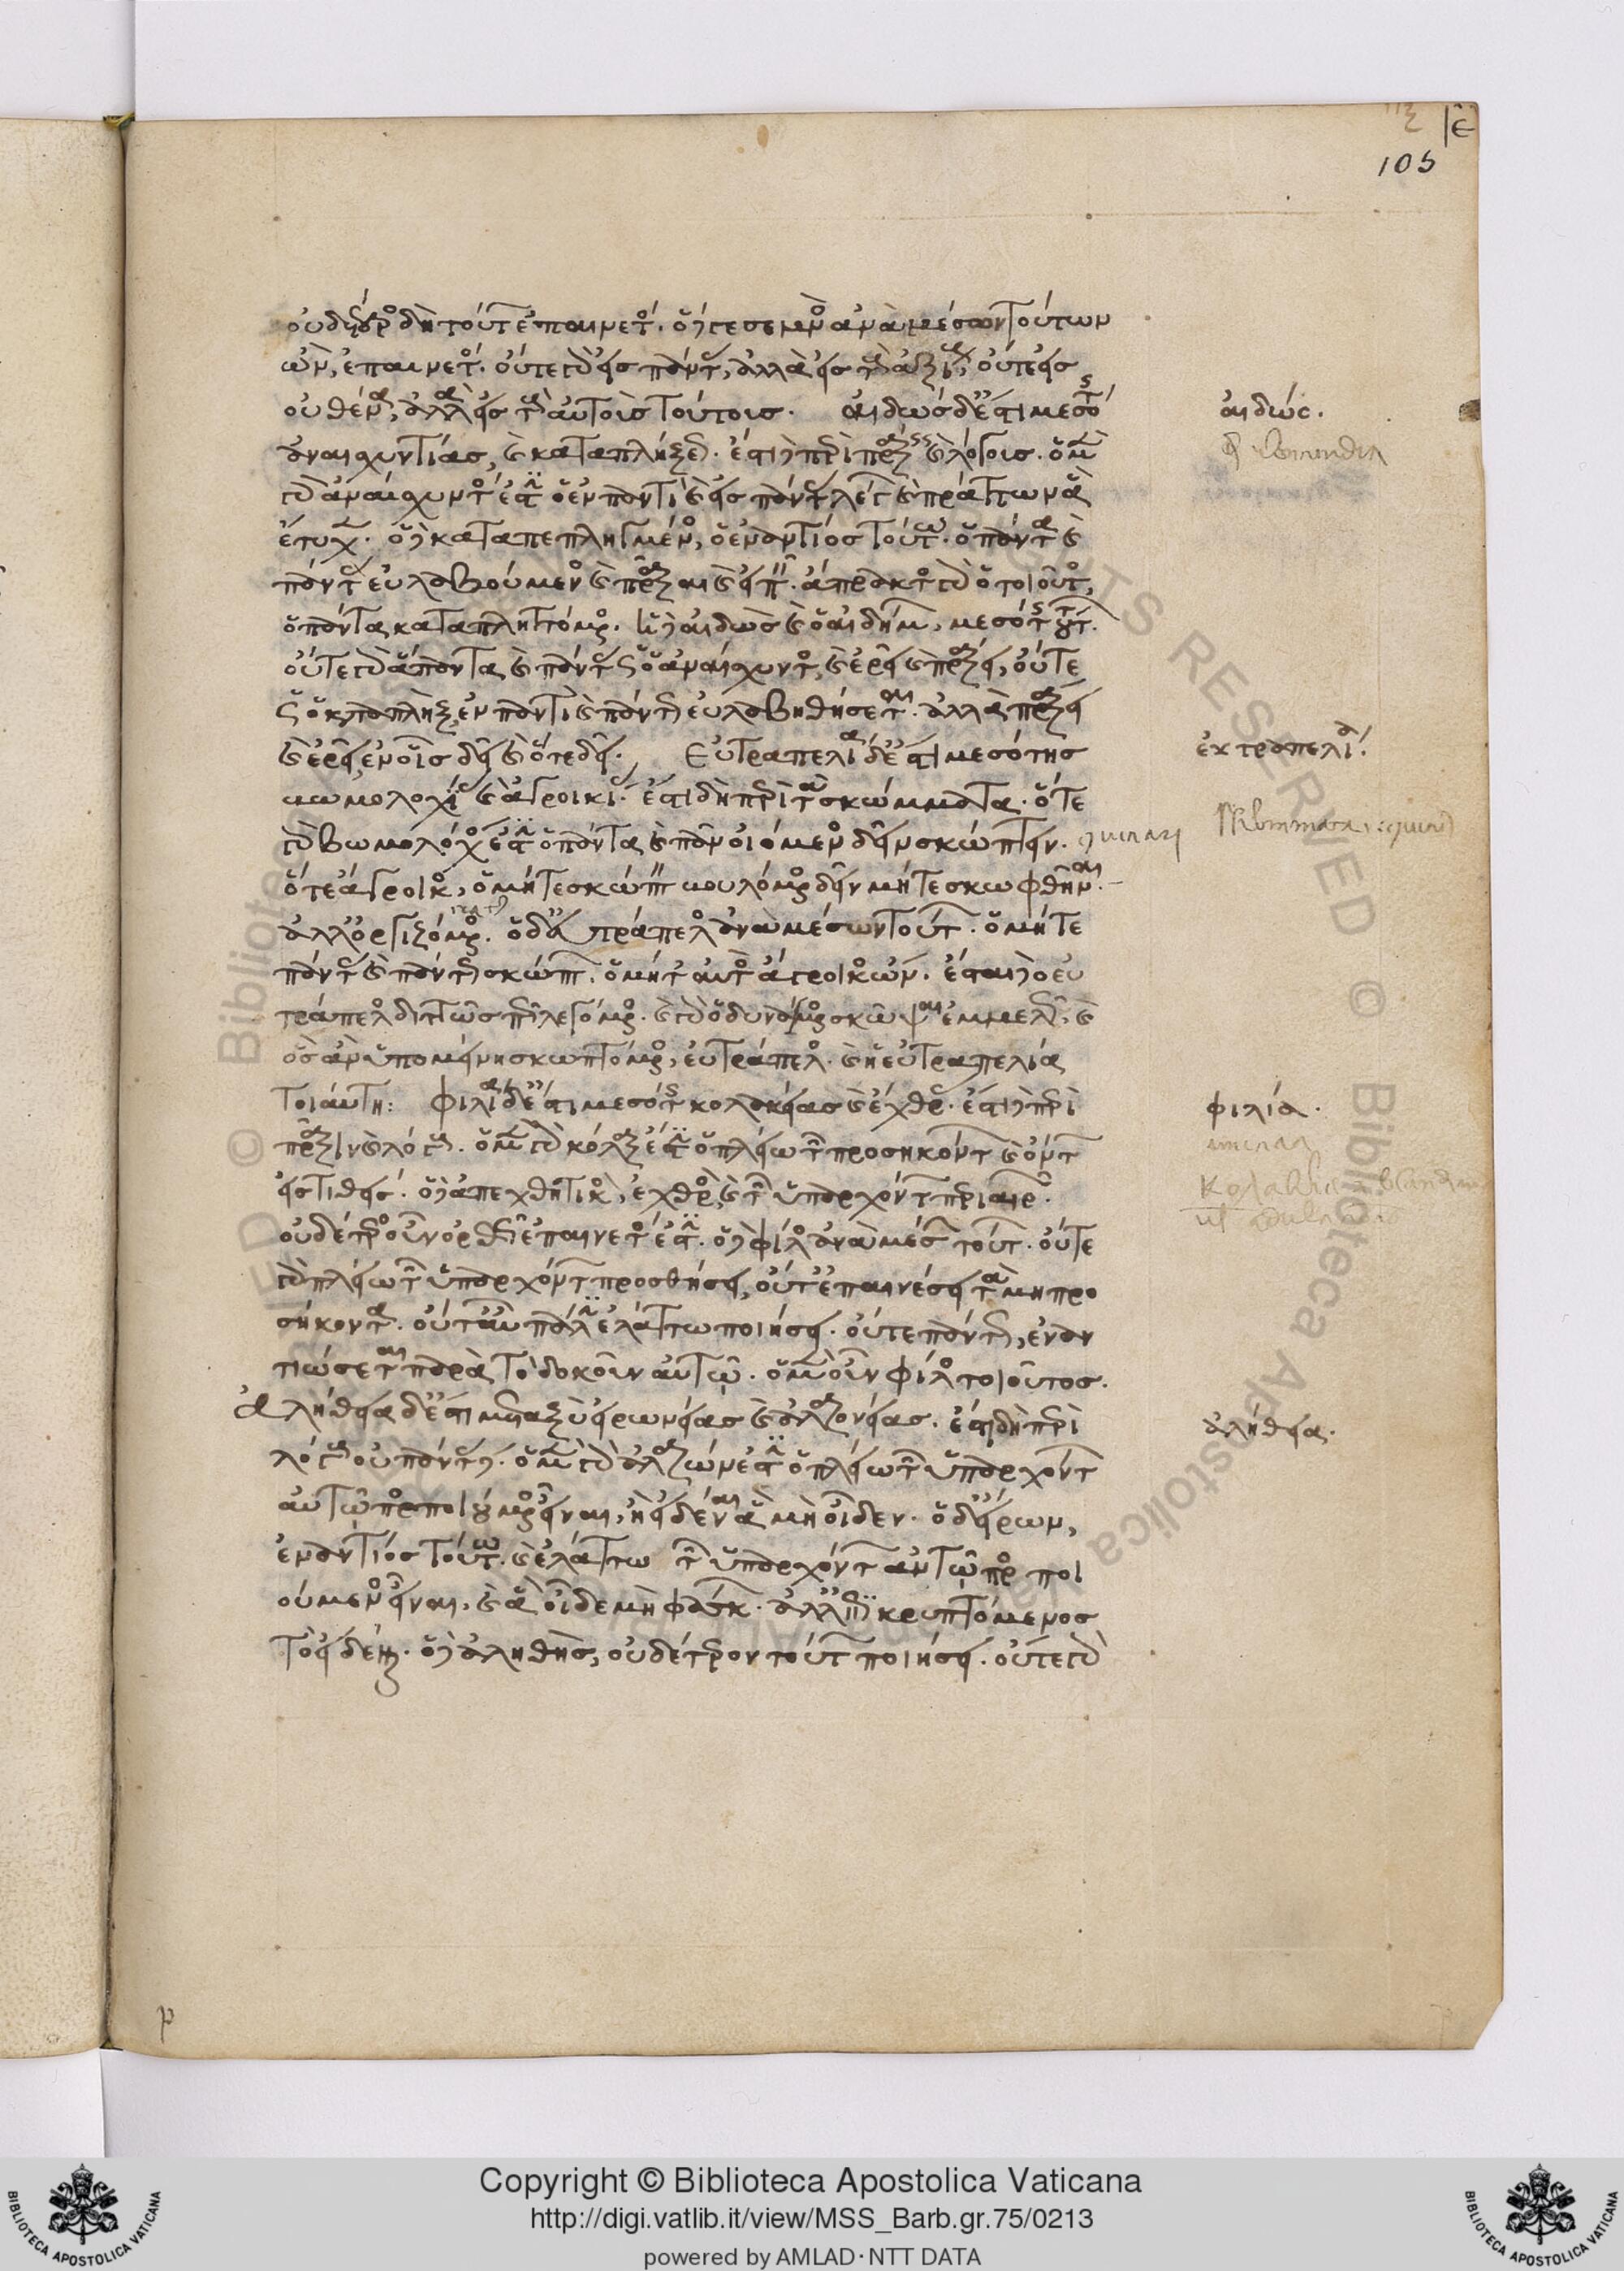 οὐδέτερος δὴ τούτων ἐπαινετός. ὁ δὲ σεμνὸς ἀνὰ μέσον τούτων
ὤν, ἐπαινετός. οὔτε γὰρ εἰς πάντας, ἀλλὰ εἰς τοὺς ἀξίους, οὔτε εἰς
οὐθένα, ἀλλ' εἰς τοὺς αὐτοὺς τούτους. αἰδὼς δ' ἐστὶ μεσότης
ἀναισχυντίας, καὶ καταπλήξεως. ἔστι δὲ περὶ πράξεις καὶ λόγους. ὁ μὲν
γὰρ ἀναίσχυντός ἐστιν ὁ ἐν παντὶ καὶ εἰς πάντας λέγων καὶ πράττων ἃ
ἔτυχεν. ὁ δὲ καταπεπληγμένος, ὁ ἐναντίος τούτῳ. ὁ πάντα καὶ
πάντας εὐλαβούμενος καὶ πρᾶξαι καὶ εἰπεῖν. ἄπρακτος γὰρ ὁ τοιοῦτος,
ὁ πάντα καταπληττόμενος. ἡ δὲ αἰδὼς καὶ ὁ αἰδήμων, μεσότης τις τούτων.
οὔτε γὰρ ἅπαντα καὶ πάντως ὡς ὁ ἀναίσχυντος, καὶ ἐρεῖ καὶ πράξει, οὔτε
ὡς ὁ καταπλὴξ ἐν παντὶ καὶ πάντως εὐλαβηθήσεται. ἀλλὰ πράξει
καὶ ἐρεῖ, ἐν οἷς δεῖ καὶ ὅτε δεῖ. Εὐτραπελία δ' ἐστὶ μεσότης
βωμολοχίας καὶ ἀγροικίας. ἔστι δὴ περὶ τὰ σκώμματα. ὅ τε
γὰρ βωμολόχος ἐστὶν ὁ πάντα καὶ πᾶν οἰόμενος δεῖν σκώπτειν.
ὅ τε ἄγροικος, ὁ μήτε σκώπτειν βουλόμενος δεῖν μήτε σκωφθῆναι.
ἀλλ' ὀργιζόμενος. ὁ δ' εὐτράπελος ἀνὰ μέσον τούτων. ὁ μήτε
πάντας καὶ πάντως σκώπτων. ὁ μήτ' αὐτὸς ἄγροικος ὤν. ἔσται δὲ ὁ εὐ
τράπελος διττῶς πως λεγόμενος. καὶ γὰρ ὁ δυνάμενος σκῶψαι ἐμμελῶς, καὶ
ὃς ἂν ὑπομείνῃ σκωπτόμενος, εὐτράπελος. καὶ ἡ εὐτραπελία
τοιαύτη: φιλία δ' ἐστὶ μεσότης κολακείας καὶ ἔχθρας. ἔστι δὲ περὶ
πράξεις καὶ λόγους. ὁ μὲν γὰρ κόλαξ ἐστὶν ὁ πλείω τῶν προσηκόντων καὶ ὄντων
προστιθείς. ὁ δὲ ἀπεχθητικὸς, ἐχθρὸς, καὶ τῶν ὑπαρχόντων περιαιρῶν.
οὐδέτερος οὖν ὀρθῶς ἐπαινετός ἐστιν. ὁ δὲ φίλος ἀνὰ μέσον τούτων. οὔτε
γὰρ πλείω τῶν ὑπαρχόντων προσθήσει, οὔτ' ἐπαινέσει τὰ μὴ προ
σήκοντα. οὔτ' αὖ πάλιν ἐλάττω ποιήσει. οὔτε πάντως, ἐναν
τιώσεται παρὰ τὸ δοκοῦν αὐτῷ. ὁ μὲν οὖν φίλος τοιοῦτος.
Ἀλήθεια δ' ἐστὶ μεταξὺ εἰρωνείας καὶ ἀλαζονείας. ἔστι δὴ περὶ
λόγους οὐ πάντας δέ. ὁ μὲν γὰρ ἀλαζών ἐστιν ὁ πλείω τῶν ὑπαρχόντων
αὐτῷ προσποιούμενος εἶναι, ἢ εἰδέναι ἃ μὴ οἶδεν. ὁ δ' εἴρων,
ἐναντίος τούτῳ. καὶ ἐλάττω τῶν ὑπαρχόντων αὐτῷ προσποι
ούμενος εἶναι, καὶ ἃ οἶδε μὴ φάσκων. ἀλλ' ἐπικρυπτόμενος
τὸ εἰδέναι. ὁ δὲ ἀληθὴς, οὐδέτερον τούτων ποιήσει. οὔτε γὰρ
αἰδώς.
ἐκτραπελία.
φιλία.
ἀλήθεια.
105
Copyright © Biblioteca Apostolica Vaticana
http://digi.vatlib.it/view/MSS_Barb.gr.75/0213
powered by AMLAD·NTT DATA